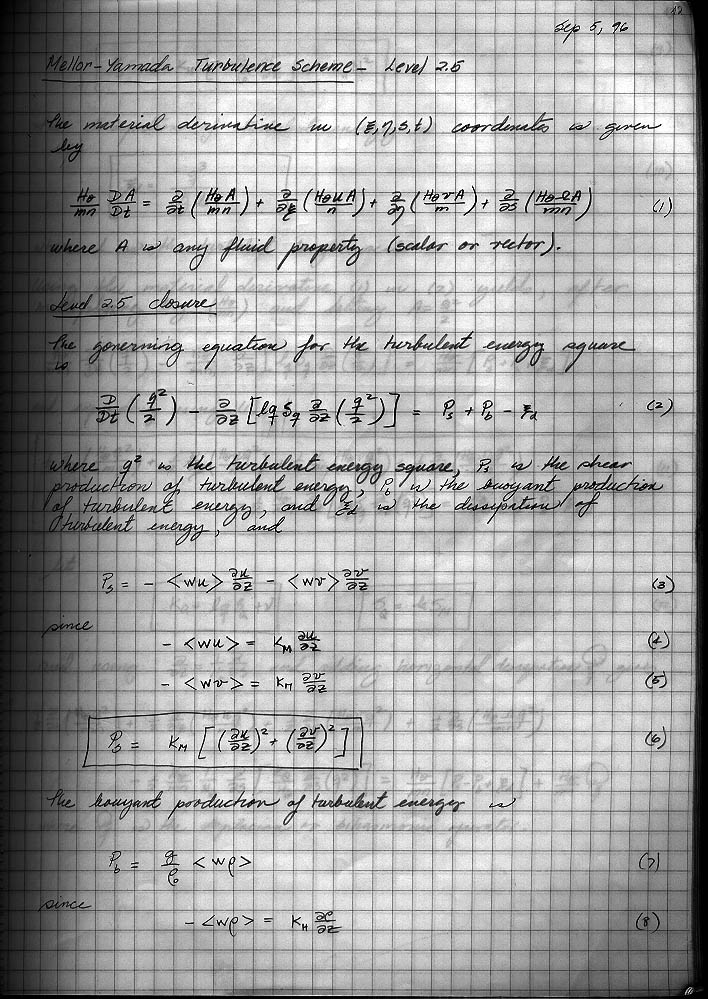 12
Sep 5, 96
Mellor-Yamada Turbulence Scheme - Level 2.5
The material derivative in (ξ,η,s,t) coordinates is given
by
Hσ/mn DA/Dt = ∂/∂t (HσA/mn) + ∂/∂ξ (HσuA/n) + ∂/∂η (HσvA/m) + ∂/∂s (HσΩA/mn) (1)
where A is any fluid property (scalar or vector).
Level 2.5 closure
The governing equation for the turbulent energy square
is
D/Dt (q²/2) - ∂/∂z [lq Sq ∂/∂z (q²/2)] = Ps + Pb - ξd (2)
where q² is the turbulent energy square, Ps is the shear
production of turbulent energy, Pb is the buoyant production
of turbulent energy, and ξd is the dissipation of
turbulent energy, and
Ps = - <wu> ∂u/∂z - <wv> ∂v/∂z (3)
since
- <wu> = KM ∂u/∂z (4)
- <wv> = KM ∂v/∂z (5)
Ps = KM [(∂u/∂z)² + (∂v/∂z)²] (6)
The bouyant production of turbulent energy is
Pb = g/ρo <wρ> (7)
since
- <wρ> = KH ∂ρ/∂z (8)